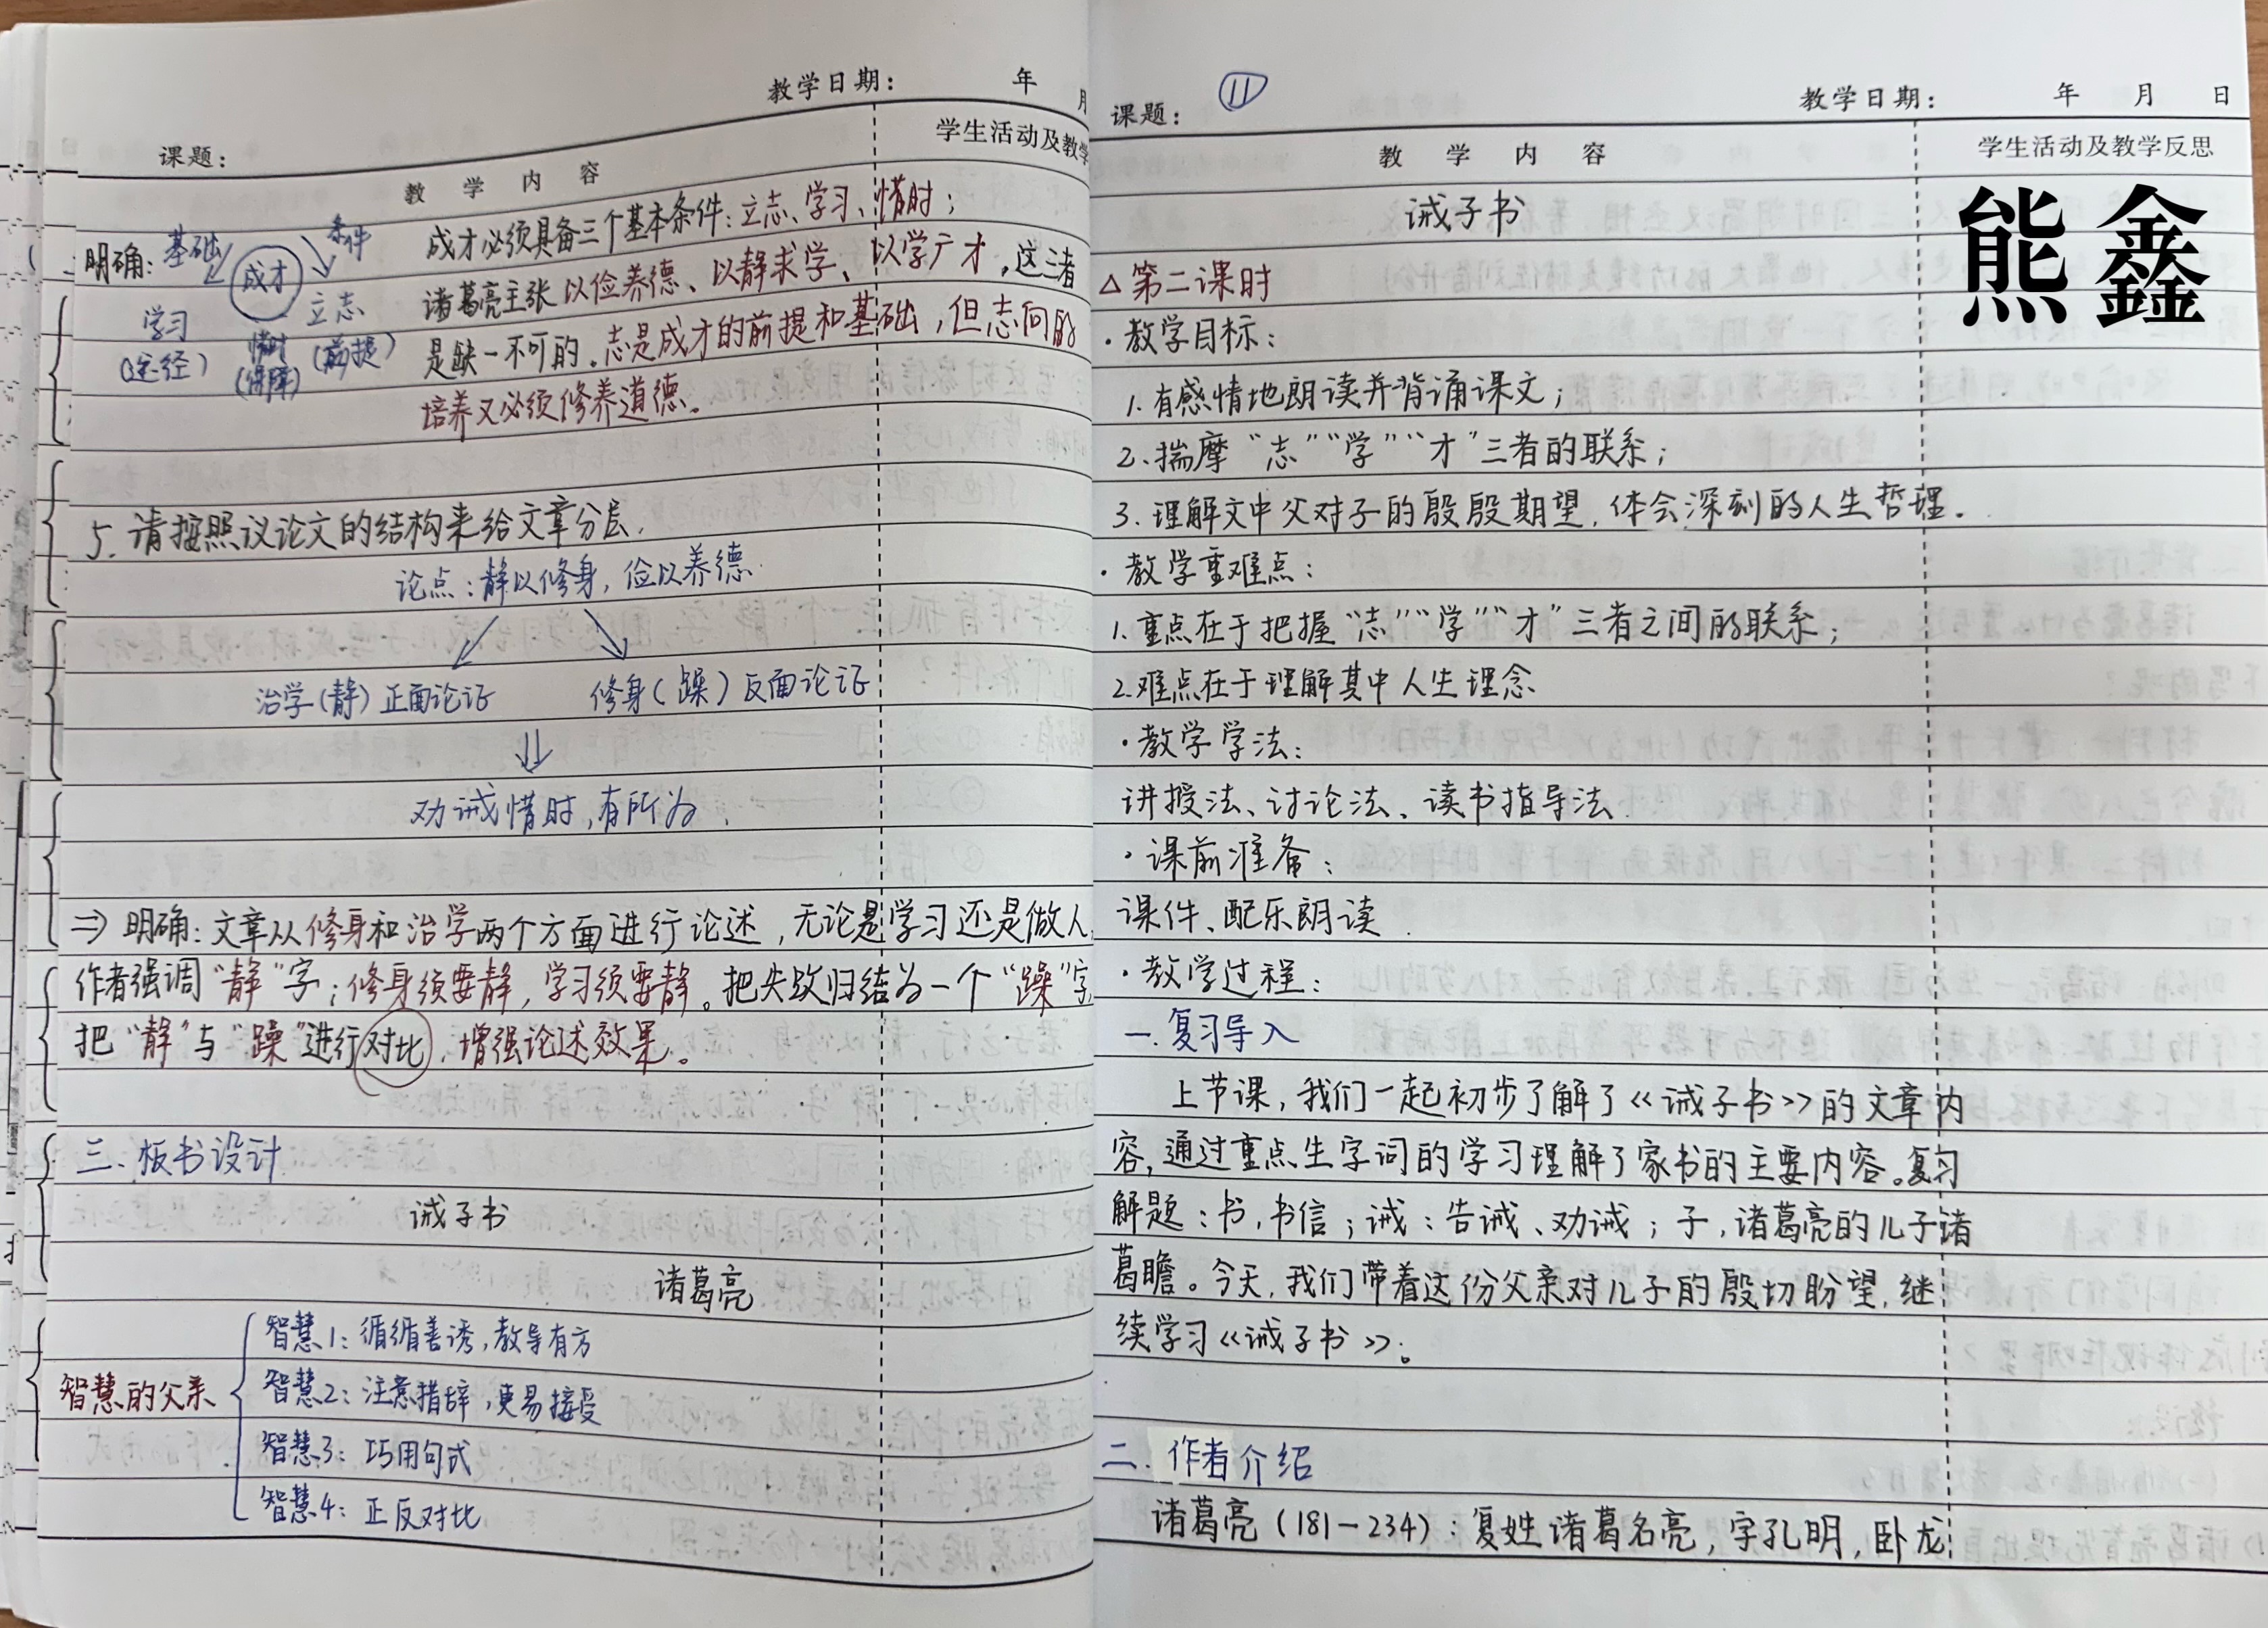 教学日期： 年 月
课题：
教 学 内 容
学生活动及教学
明确：
基础
条件
成才
学习
(途径)
惜时
(保障)
立志
(前提)
成才必须具备三个基本条件：立志、学习、惜时；
诸葛亮主张以俭养德、以静求学、以学广才，这三者
是缺一不可的。志是成才的前提和基础，但志向的
培养又必须修养道德。
5. 请按照议论文的结构来给文章分层.
论点：静以修身，俭以养德.
治学(静)正面论证 修身(躁)反面论证
劝诫惜时,有所为.
⇒ 明确：文章从修身和治学两个方面进行论述，无论是学习还是做人,
作者强调“静”字；修身须要静，学习须要静。把失败归结为一个“躁”字,
把“静”与“躁”进行对比，增强论述效果。
三. 板书设计
诫子书
诸葛亮
智慧的父亲
智慧1：循循善诱，教导有方
智慧2：注意措辞，更易接受
智慧3：巧用句式
智慧4：正反对比
课题： 11
教学日期： 年 月 日
教 学 内 容
学生活动及教学反思
熊鑫
诫子书
△第二课时
·教学目标：
1. 有感情地朗读并背诵课文；
2. 揣摩“志”“学”“才”三者的联系；
3. 理解文中父对子的殷殷期望，体会深刻的人生哲理.
·教学重难点：
1. 重点在于把握“志”“学”“才”三者之间的联系；
2. 难点在于理解其中人生理念.
·教学学法：
讲授法、讨论法、读书指导法.
·课前准备：
课件、配乐朗读.
·教学过程：
一. 复习导入
上节课，我们一起初步了解了《诫子书》的文章内
容，通过重点生字词的学习理解了家书的主要内容。复习
解题：书，书信；诫：告诫、劝诫；子，诸葛亮的儿子诸
葛瞻。今天，我们带着这份父亲对儿子的殷切盼望，继
续学习《诫子书》。
二. 作者介绍
诸葛亮(181-234)：复姓诸葛名亮，字孔明，卧龙